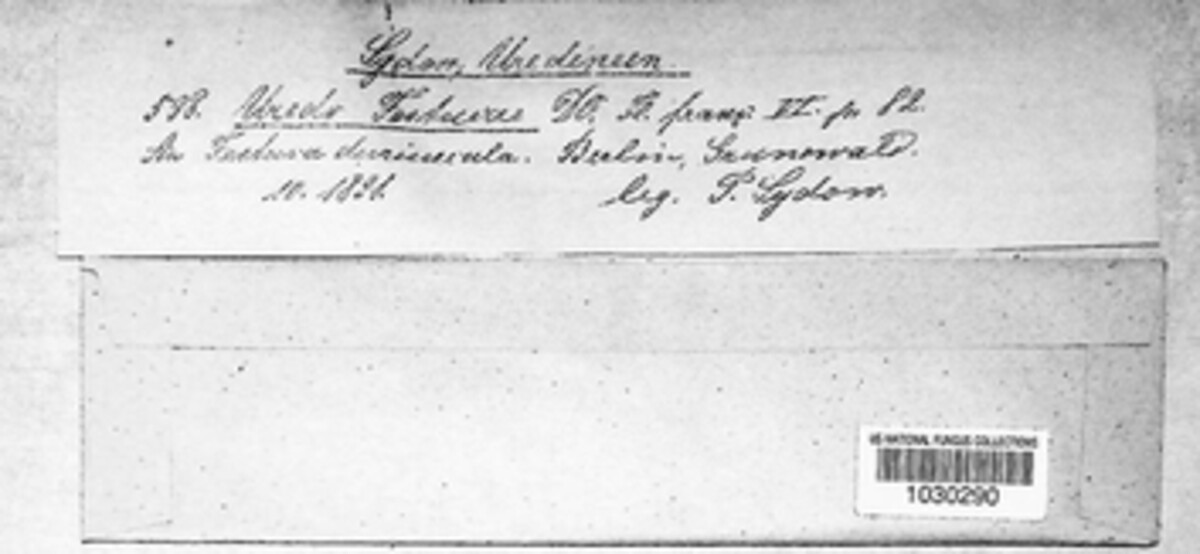 Sydow, Uredineen
598. Uredo Festucae DC. Fl. franç. VI. p. 82.
An Festuca duriuscula. Berlin, Grunewald.
10. 1891. leg. P. Sydow.
US NATIONAL FUNGUS COLLECTIONS
1030290